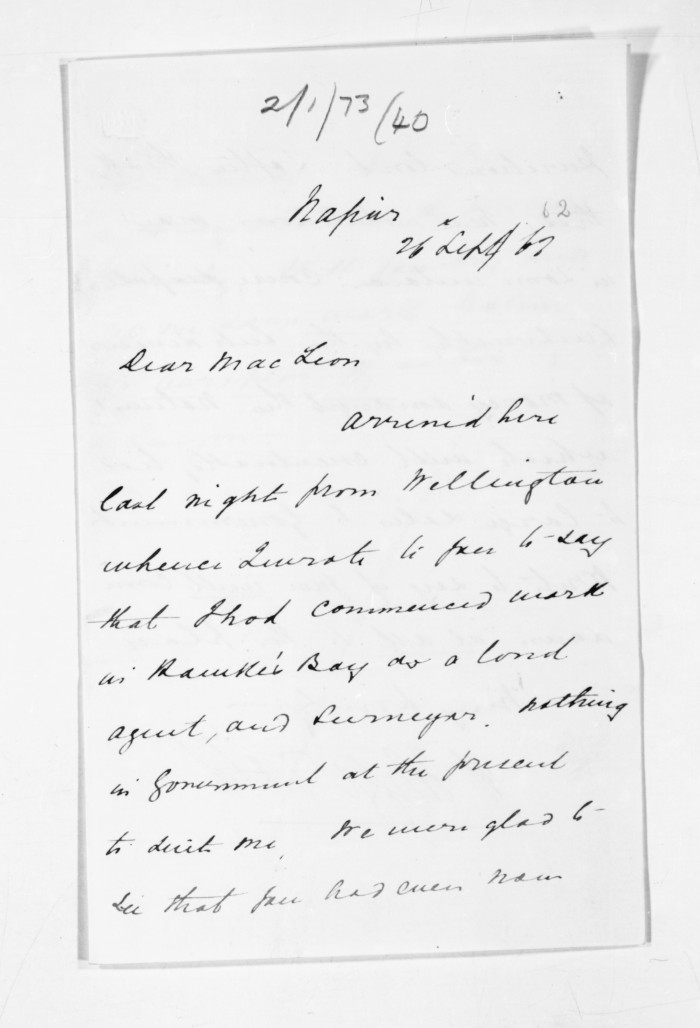 2/1/73 (40
62
Napier
26 Sept 67
Dear Mac Lean
arrived here
last night from Wellington
whence I wrote to you to say
that I had commenced work
in Hawke's Bay as a land
agent, and Surveyor. nothing
in Government at the present
to suit me. We were glad to
see that you had even now